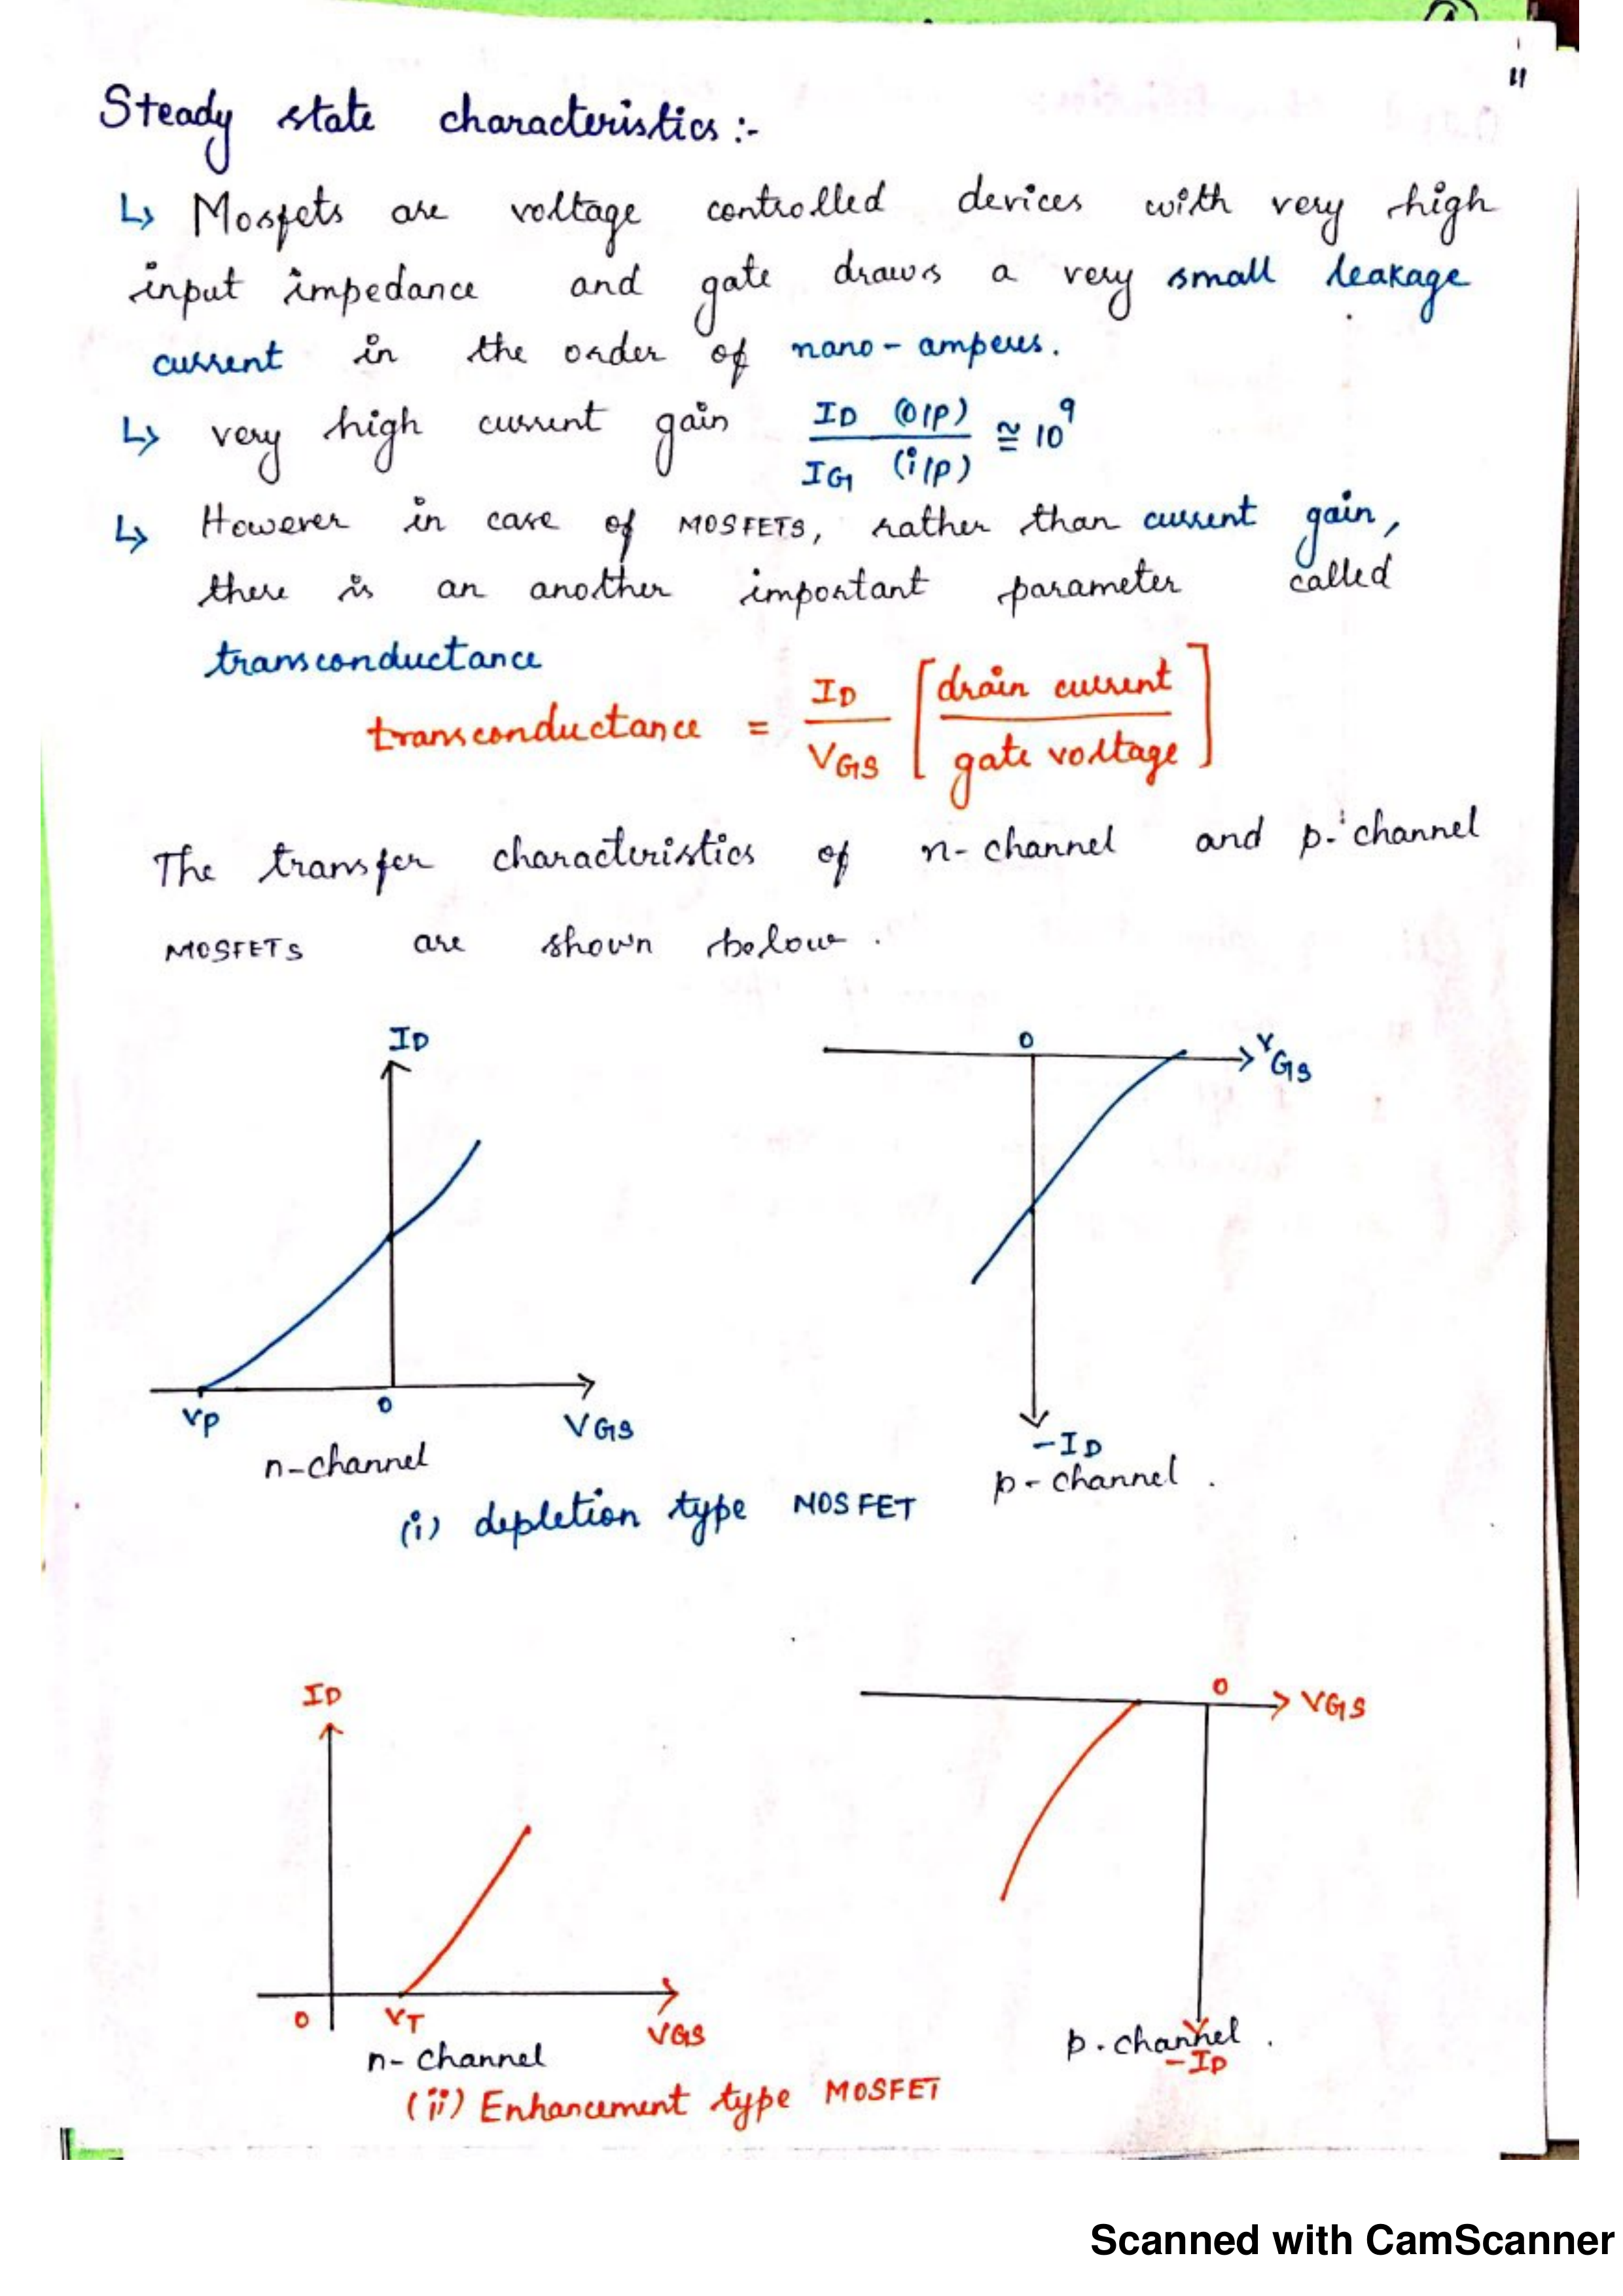 11
Steady state characteristics :-
↳ Mosfets are voltage controlled devices with very high
input impedance and gate draws a very small leakage
current in the order of nano-amperes.
↳ very high current gain ID (o/p) / IG (i/p) ≅ 10^9
↳ However in case of MOSFETS, rather than current gain,
there is an another important parameter called
transconductance
transconductance = ID / VGS [drain current / gate voltage]
The transfer characteristics of n-channel and p-channel
MOSFETS are shown below.
ID
0
VGS
VP
0
VGS
n-channel
-ID
p-channel.
(i) depletion type MOSFET
ID
0
VGS
0
VT
VGS
n-channel
p-channel.
-ID
(ii) Enhancement type MOSFET
Scanned with CamScanner